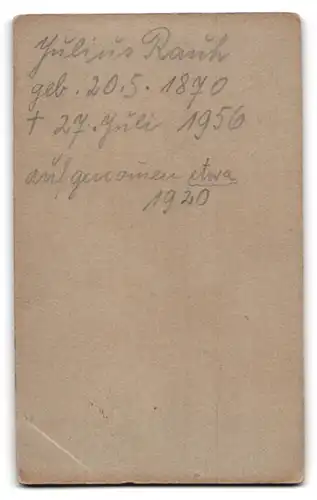 Julius Rauh
geb. 20.5. 1870
† 27. Juli 1956
aufgenomen etwa
1920